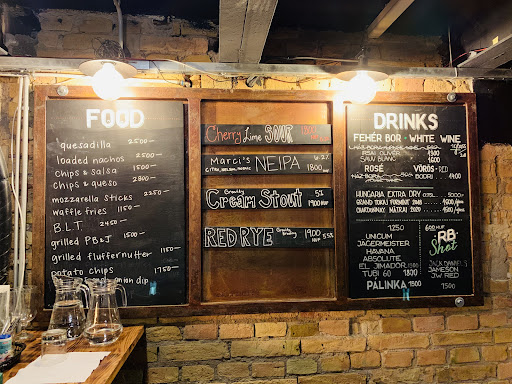 FOOD
quesadilla 2500
loaded nachos 2500
chips & salsa 1750
chips & queso 2800
mozzarella sticks 2250
waffle fries 1150
B.L.T. 2450
grilled PB&J 1150
grilled fluffernutter 1150
potato chips 1750
onion dip
Cherry Lime SOUR
Marci's NEIPA 6.2%
1800
Cream Stout 5%
1900 HUF
RED RYE Brewing 1900 HUF 5.5%
DRINKS
FEHÉR BOR · WHITE WINE
IRSAI OLIVÉR
SAUV BLANC 1600
ROSÉ VÖRÖS · RED
BODRI
HUNGARIA EXTRA DRY 0.75L 5000
GRAND TOKAJ FURMINT 2018
CHARDONNAY MÁTRAI 2020
1250
UNICUM
JÄGERMEISTER
HAVANA
ABSOLUTE
EL JIMADOR
TUBI 60 1800
PÁLINKA 1800
600 HUF
RB
Shot
JACK DANIELS
JAMESON
JW RED
1500